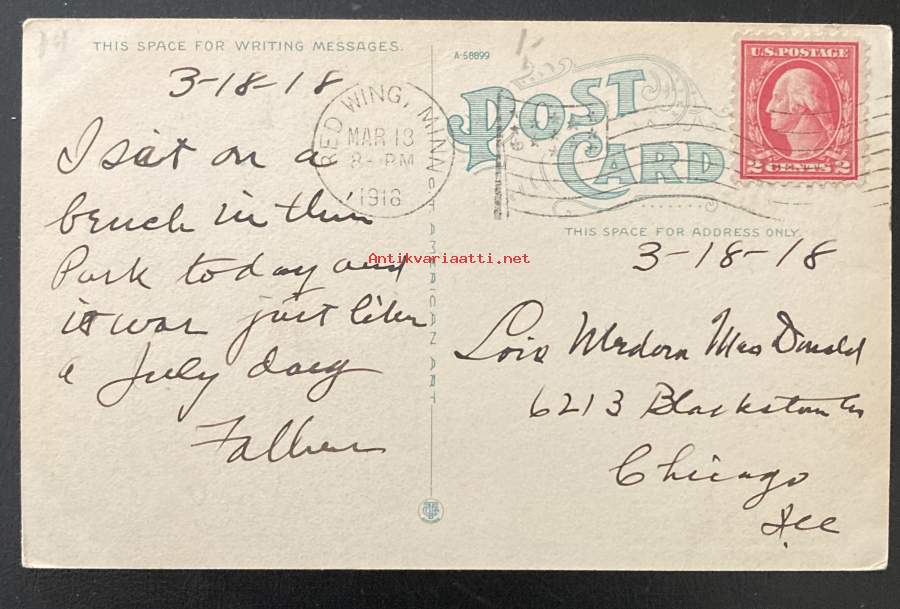 THIS SPACE FOR WRITING MESSAGES.
3-18-18
I sat on a
bench in this
Park today and
it was just like
a July day
Father
A-58899
POST
CARD
RED WING, MINN
MAR 18
8- PM
1918
U.S. POSTAGE
2 CENTS 2
AMERICAN ART
THIS SPACE FOR ADDRESS ONLY.
3-18-18
Lois Medora MacDonald
6213 Blackstone Av
Chicago
Ill
Antikvariaatti.net